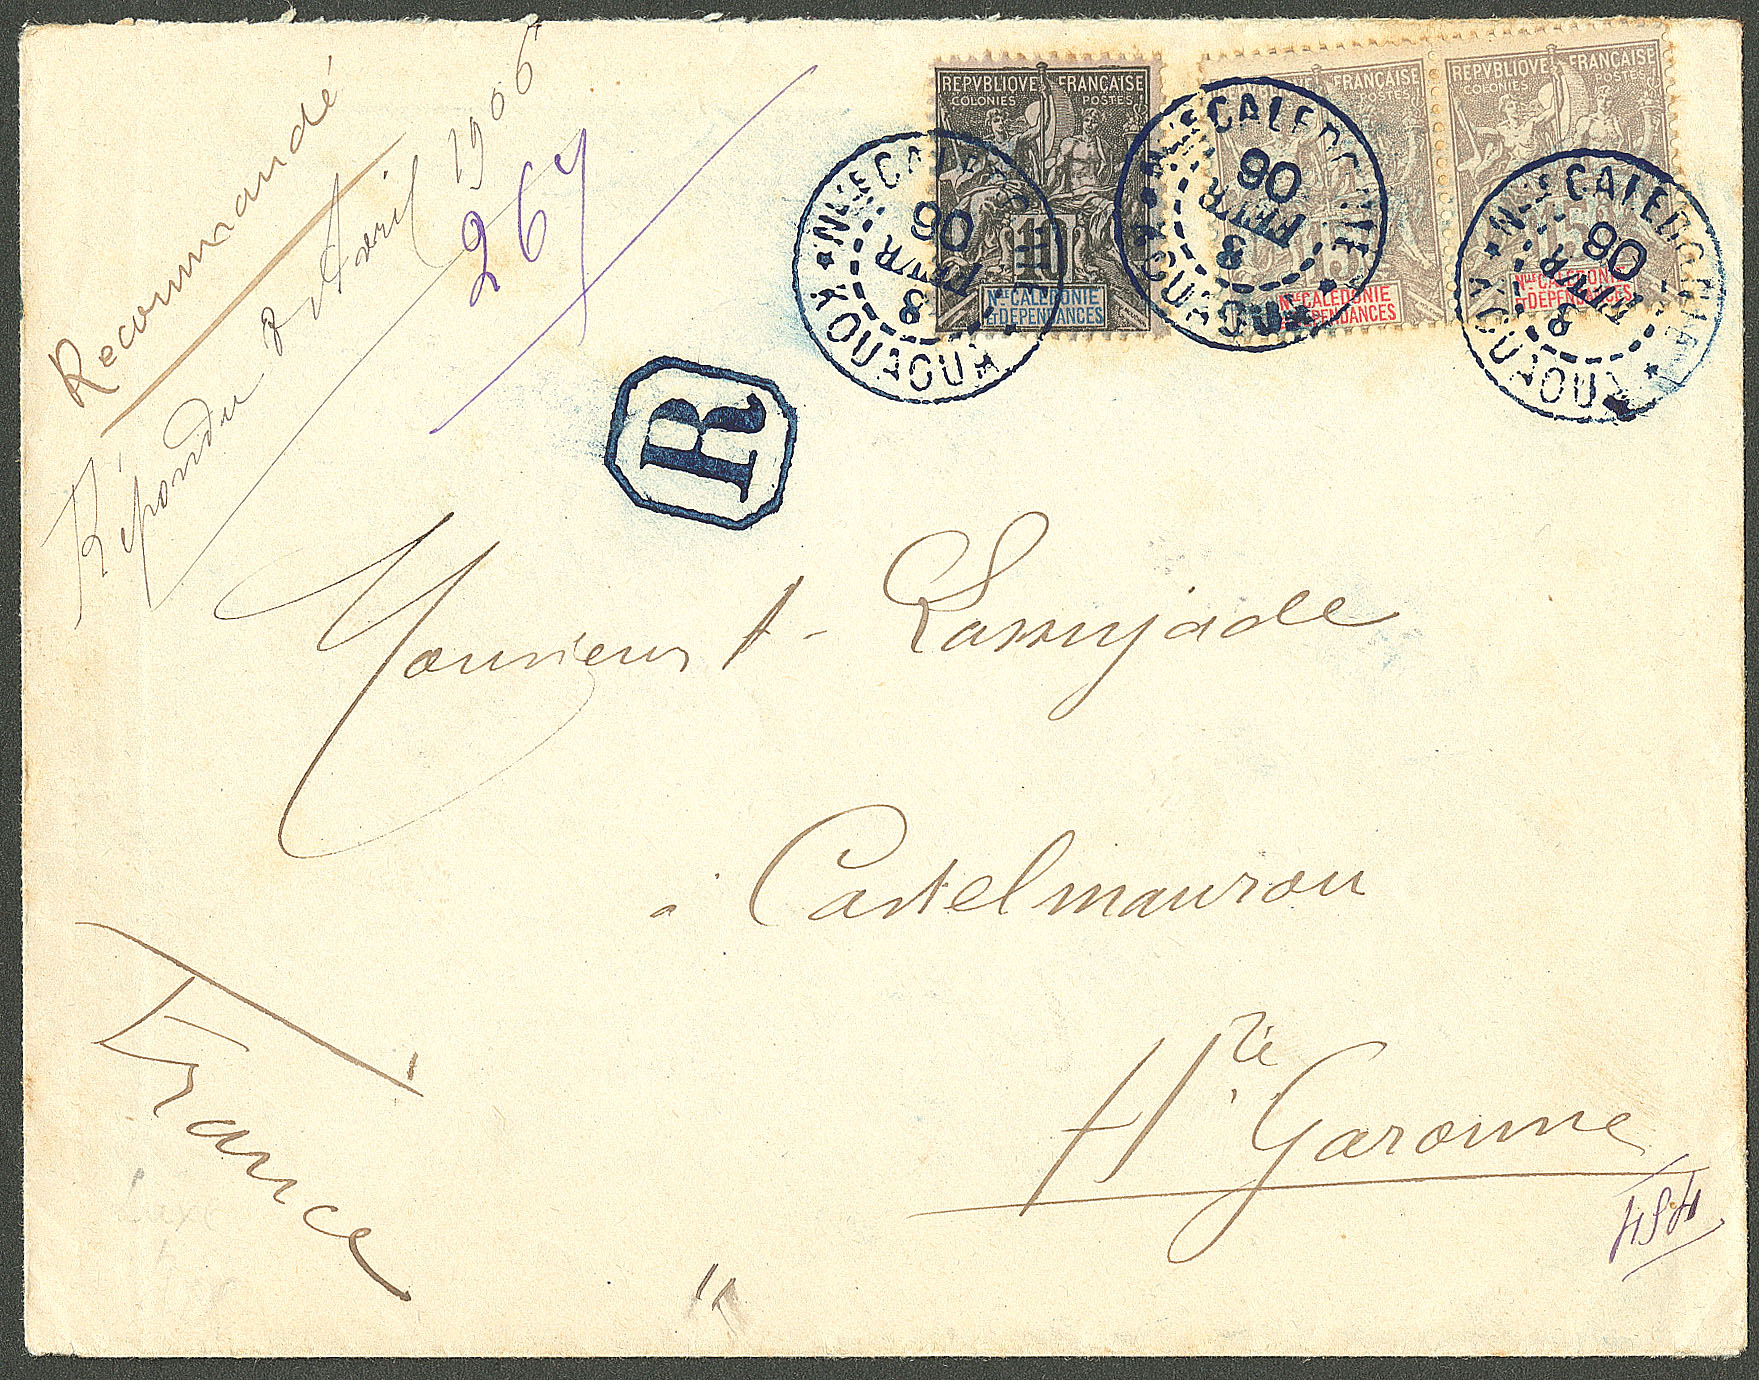 Recommandé
Répondu 8 Avril 1906
267
REPVBLIQVE FRANÇAISE
COLONIES POSTES
10
NLLE CALÉDONIE
ET DÉPENDANCES
REPVBLIQVE FRANÇAISE
COLONIES POSTES
15
NLLE CALÉDONIE
ET DÉPENDANCES
REPVBLIQVE FRANÇAISE
COLONIES POSTES
15
NLLE CALÉDONIE
ET DÉPENDANCES
NLLE CALEDONIE
8 FEVR 06
NLLE CALEDONIE
8 FEVR 06
NLLE CALEDONIE
8 FEVR 06
R
Monsieur A. Lassujade
à Castelmaurou
Hte Garonne
France
484